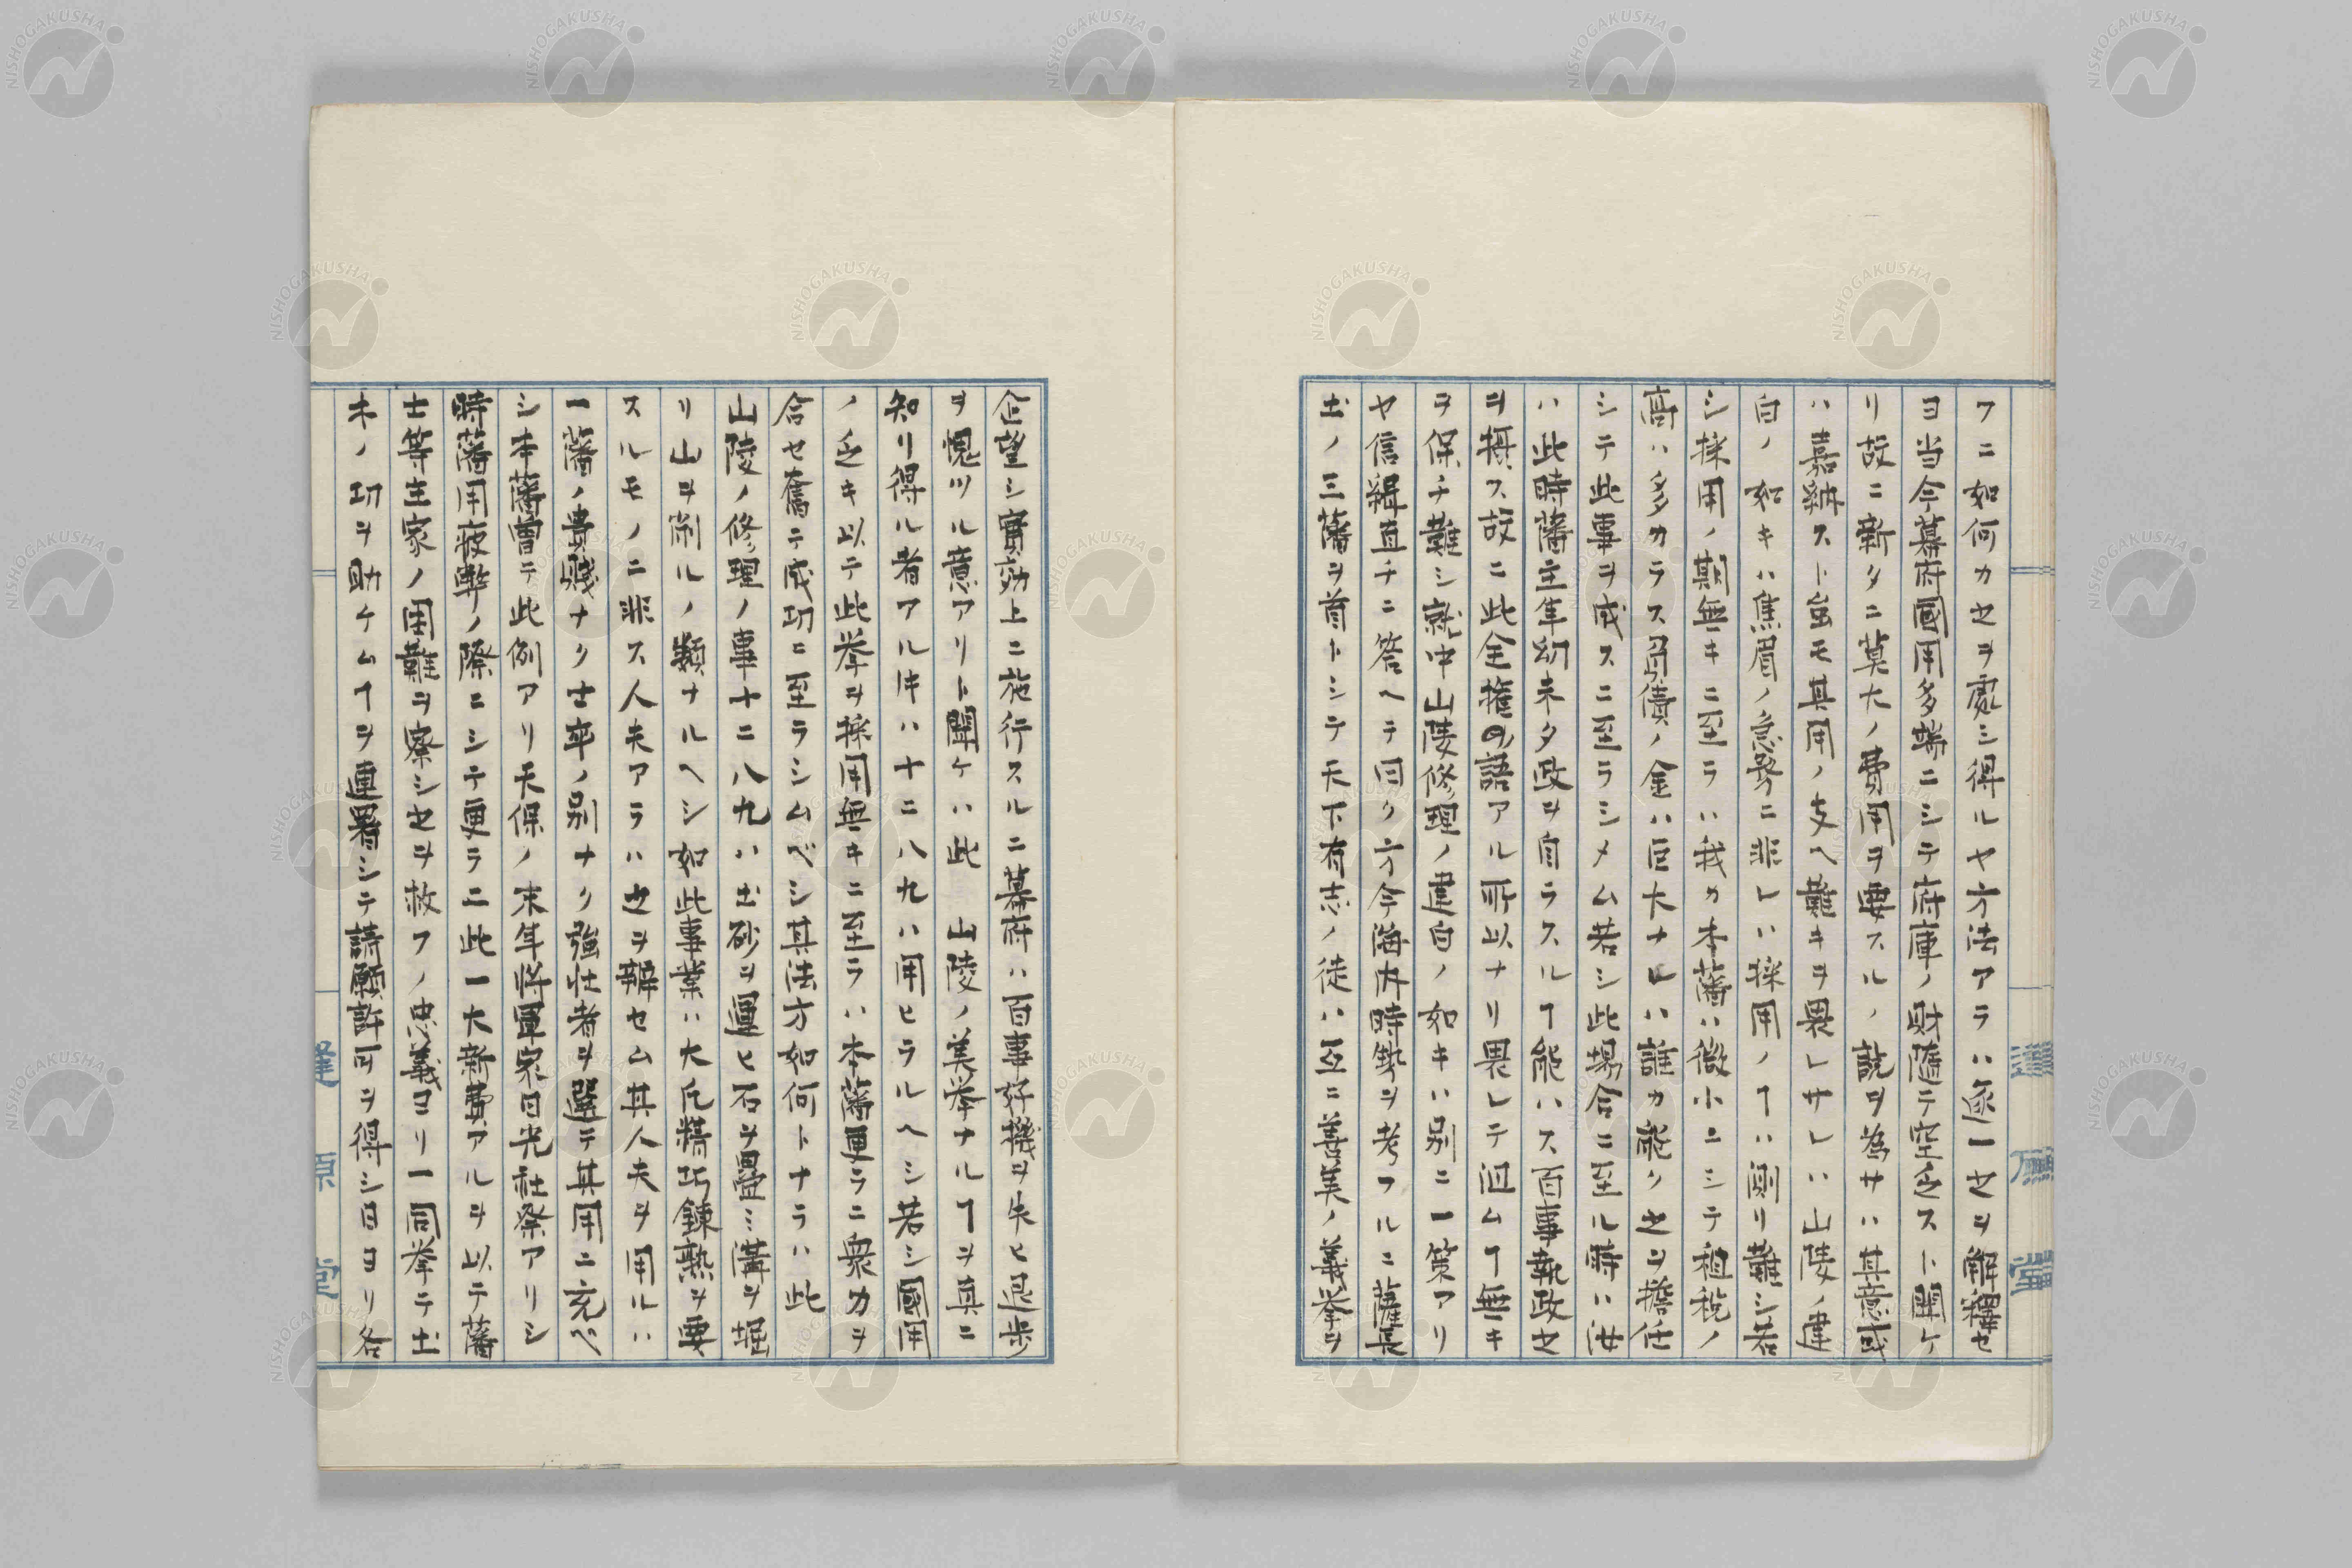 フニ如何カセヲ處シ得ルヤ方法アラハ逐一セヲ解釋セ
ヨ当今幕府國用多端ニシテ府庫ノ財隨テ空乏スト聞ケ
リ故ニ新タニ莫大ノ費用ヲ要スルノ説ヲ為サハ其意或
ハ嘉納スト虽モ其用ノ支ヘ難キヲ畏レサレハ山陵ノ建
白ノ如キハ焦眉ノ急務ニ非レハ採用ノヿハ測リ難シ若
シ採用ノ期無キニ至ラハ我カ本藩ハ微小ニシテ租税ノ
高ハ多カラス負債ノ金ハ巨大ナレハ誰カ能ク之ヲ擔任
シテ此事ヲ成スニ至ラシメム若シ此場合ニ至ル時ハ汝
ハ此時藩主年幼未タ政ヲ自ラスルヿ能ハス百事執政之
ヲ摂ス故ニ此全権の語アル所以ナリ畏レテ泹ムヿ無キ
ヲ保チ難シ就中山陵修理ノ建白ノ如キハ別ニ一策アリ
ヤ信緝直チニ答ヘテ曰ク方今海内時勢ヲ考フルニ薩長
土ノ三藩ヲ首トシテ天下有志ノ徒ハ互ニ善美ノ義挙ヲ
企望シ實効上ニ施行スルニ幕府ハ百事好機ヲ失ヒ退歩
ヲ愧ツル意アリト聞ケハ此 山陵ノ美挙ナルヿヲ真ニ
知リ得ル者アル𪜈ハ十ニ八九ハ用ヒラルヘシ若シ國用
ノ乏キ以テ此挙ヲ採用無キニ至ラハ本藩更ラニ衆力ヲ
合セ奮テ成功ニ至ラシムベシ其法方如何トナラハ此
山陵ノ修理ノ事十ニ八九ハ土砂ヲ運ヒ石ヲ畳ミ溝ヲ堀
リ山ヲ削ルノ類ナルヘシ如此事業ハ大氐精巧錬熟ヲ要
スルモノニ非ス人夫アラハ之ヲ辨セム其人夫ヲ用ルハ
一藩ノ貴賎ナク士卒ノ別ナク強壮者ヲ選テ其用ニ充ベ
シ本藩曽テ此例アリ天保ノ末年将軍家日光社祭アリシ
時藩用疲弊ノ際ニシテ更ラニ此一大新費アルヲ以テ藩
士等主家ノ困難ヲ察シセヲ救フノ忠義ヨリ一同挙テ土
木ノ功ヲ助ケムヿヲ連署シテ請願許可ヲ得シ日ヨリ各
逢原堂